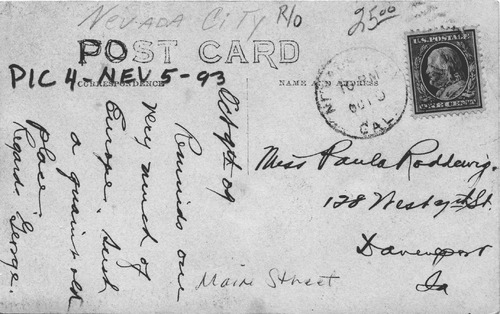 NEVADA CITY R/O 25.00
POST CARD
PIC 4 - NEV 5 - 93
CORRESPONDENCE
NAME AND ADDRESS
U.S. POSTAGE
ONE CENT
OCT
CAL.
Oct 9th 09
Reminds one
very much of
Europe. Such
a quaint old
place.
Regards, George.
Miss Paula Roddewig.
128 West 7th St.
Davenport
Ia
Main Street